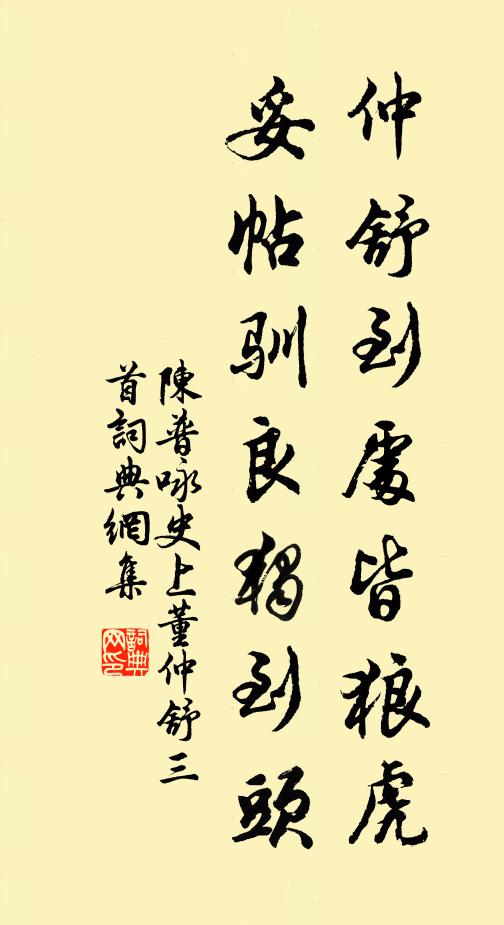 仲舒到處皆狼虎
妥帖馴良獨到頭
陳普咏史上董仲舒三
首詞典網集
詞典網印